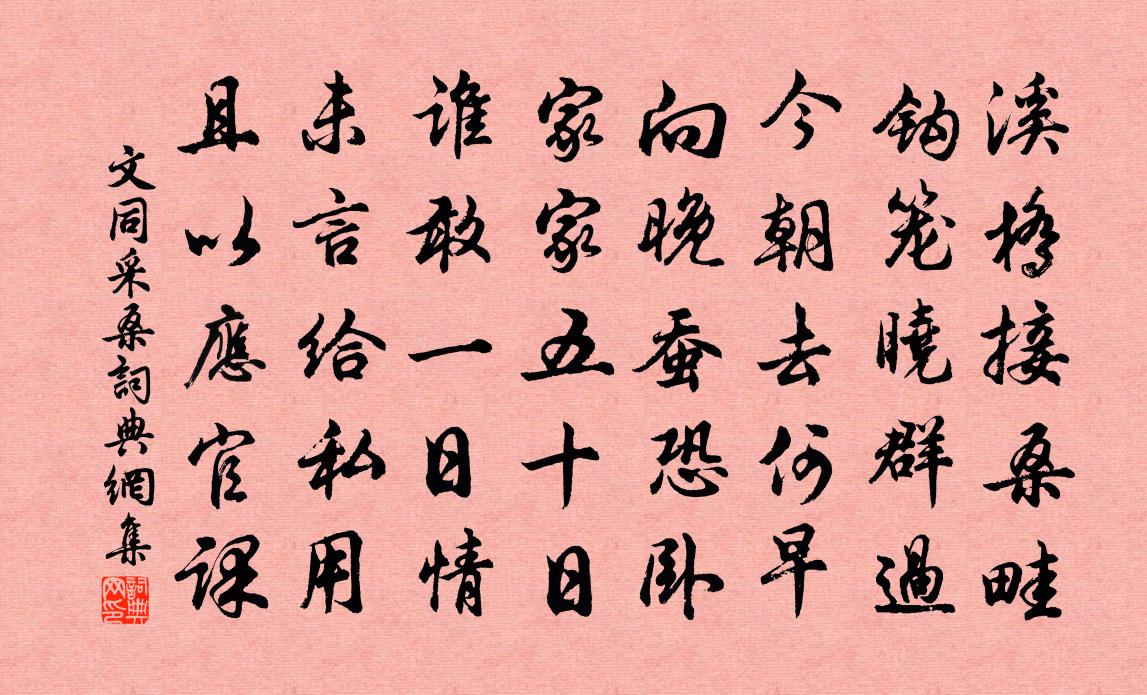 溪橋接桑畦
鈎笼曉群過
今朝去何早
向晚蚕恐卧
家家五十日
谁敢一日情
未言给私用
且以應官课
文同采桑詞典網集
詞典网印